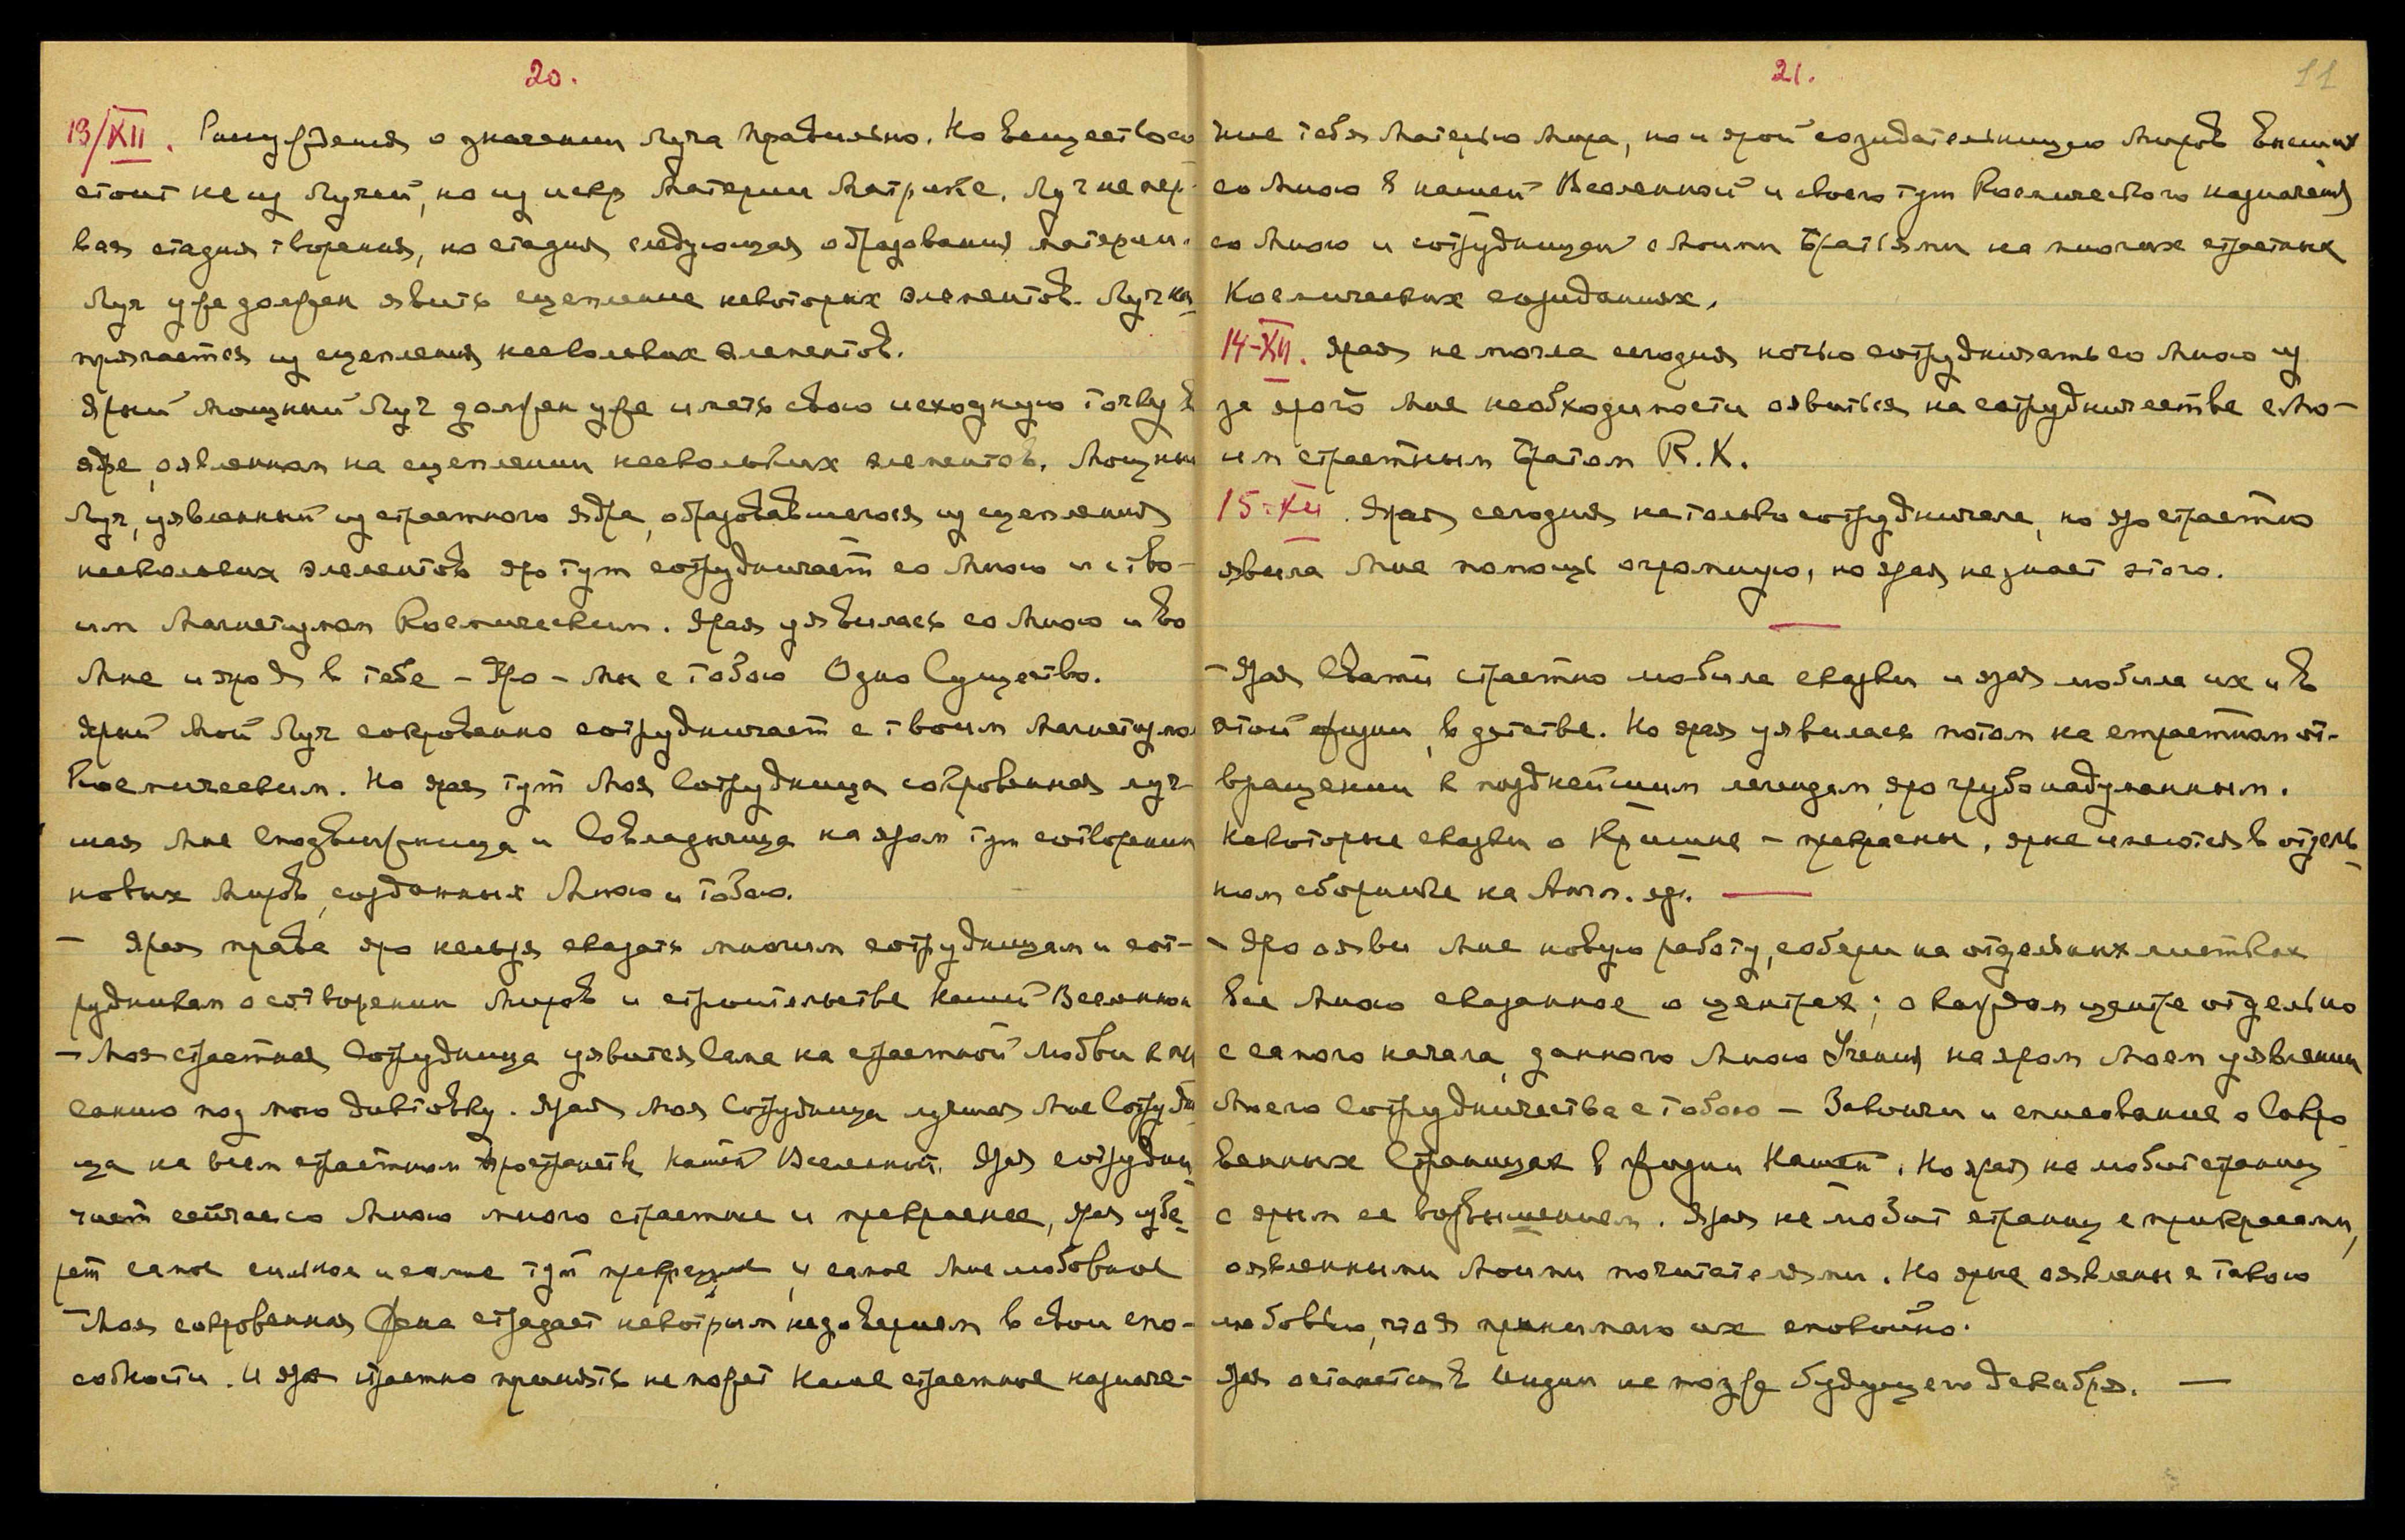 20.
13/XII. Рассуждения о значении Луча правильно. Но Вещество со
стоит не из Лучей, но из искр Материи Матрикс. Луч не пер-
вая стадия творения, но стадия следующая образования материи.
Луч уже должен явить сцепление некоторых элементов. Луч на
прягается из сцепления нескольких элементов.
Ярый мощный Луч должен уже иметь свою исходную точку в
ядре, оявленном на сцеплении нескольких элементов. Мощный
Луч, уявленный из страстного ядра, образовавшегося из сцепления
нескольких элементов яро тут сотрудничает со Мною и с тво-
им Магнетизмом Космическим. Ярая уявилась со Мною и во
Мне и яро Я в тебе – Яро – Мы с тобою Одно Существо.
Ярый Мой Луч сокровенно сотрудничает с твоим Магнетизмо
Космическим. Но ярая тут Моя Сотрудница сокровенная луч-
шая Мне Сподвижница и Совладычица на яром тут сотворении
новых Миров, созданных Мною и тобою.
– Ярая права яро нельзя сказать многим сотрудницам и сот-
рудникам о сотворении Миров и строительстве Нашей Вселенной
– Моя страстная Сотрудница уявится Сама на страстной любви к пи
санию под мою диктовку. Ярая Моя Сотрудница лучшая Мне Сотрудн
ца на всем страстном пространстве Нашей Вселенной. Ярая сотрудни
чает сейчас со Мною много страстнее и прекраснее, ярая избе
рет самое сильное и самое тут прекрасное и самое Мне любовное
– Моя сокровенная Жена страдает некотрым недоверием в свои спо-
собности. И яро страстно принять не может Наше страстное назначе-
21.
11
ние тебя Матерью Мира, но и ярой созидательницею Миров Высших
со Мною в нашей Вселенной и своего тут Космического назначения
со Мною и сотрудницей с Моими Братьями на многих страстных
Космических созиданиях.
14-XII. Ярая не могла сегодня ночью сотрудничать со Мною из
за ярой Мне необходимости оявиться на сотрудничестве с Мо-
им страстным Братом К.Х.
15-XII. Ярая сегодня не только сотрудничала, но яро страстно
явила Мне помощь огромную, но ярая не знает этого.
– Ярая Свати страстно любила сказки и ярая любила их и в
этой жизни, в детстве. Но ярая уявилась потом на страстном от-
вращении к позднейшим легендам, яро грубо надуманным.
Некоторые сказки о Кришне – прекрасны, ярые имеются в отдель
ном сборнике на Англ. яз.
– Яро ояви Мне новую работу, собери на отдельных листках
все Мною сказанное о центрах; о каждом центре отдельно
с самого начала, данного Мною Учения на яром Моем уявлении
Моего Сотрудничества с тобою – Закончи и списывание о Сокро
венных Страницах в Жизни Нашей. Но ярая не любит страниц
с ярым ее возвышением. Ярая не любит страниц с прикрасами,
оявленными Моими почитателями. Но ярые оявлены с такою
любовью, что Я принимаю их спокойно.
Ярая останется в Индии не позже будущего декабря. –